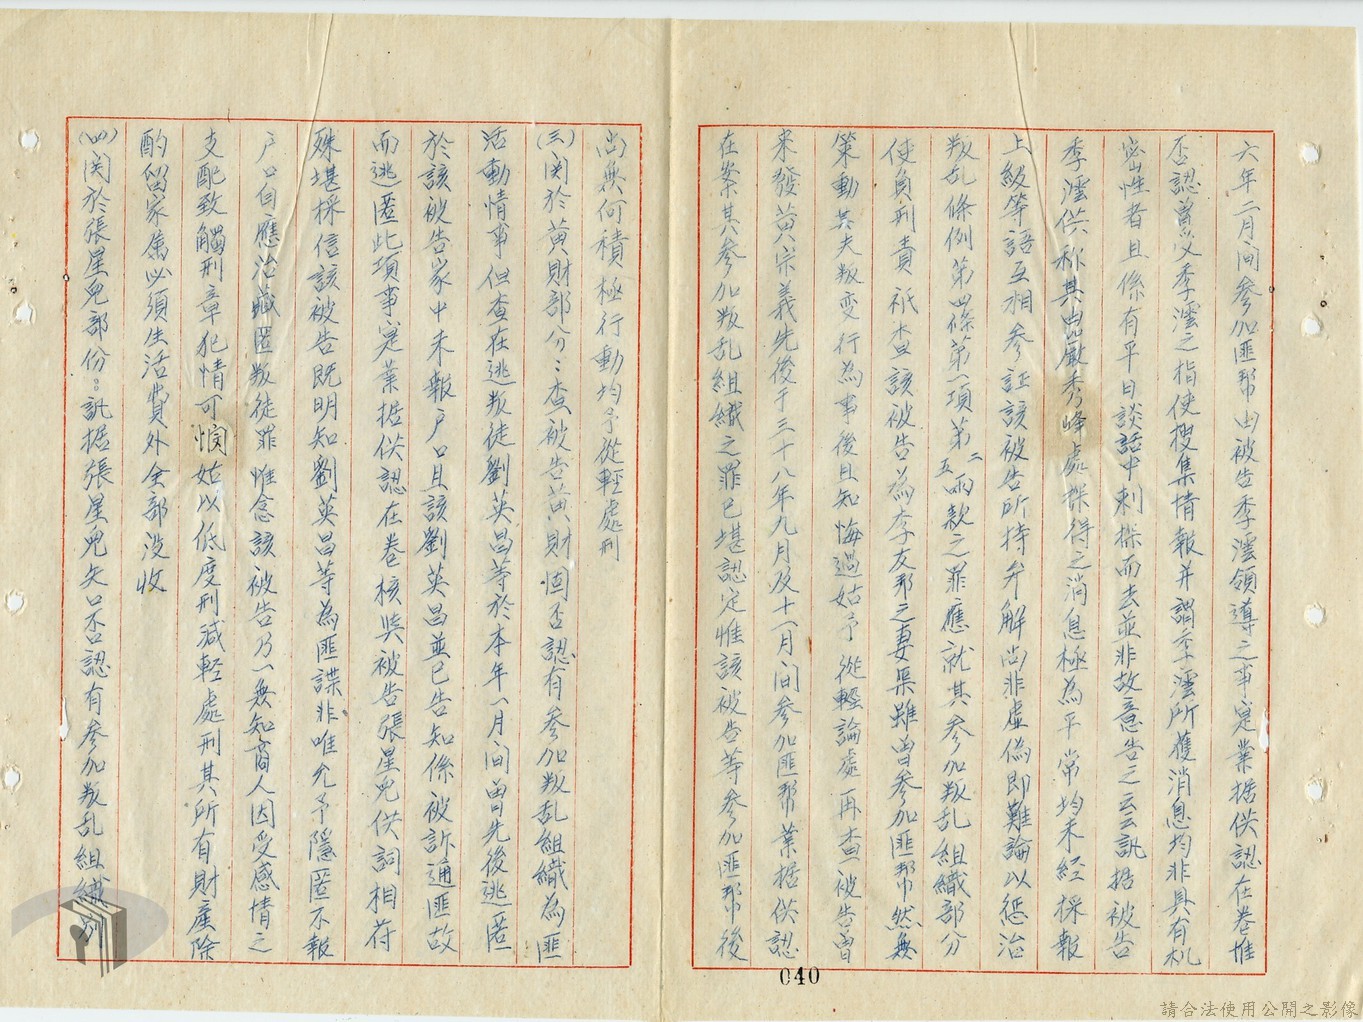 六年二月间參加匪帮由被告季澐領導之事寔業据供認在卷惟
否認曾受季澐之指使搜集情報并謂季澐所獲消息均非具有机
密性者且係有平日談話中刺探而去並非故意告之云云訊据被告
季澐供称其由嚴秀峰處探得之消息極為平常均未經採報
上級等語互相參証該被告所持弁解尚非虚偽即難論以懲治
叛乱條例第四條第一項第二五兩款之罪應就其參加叛乱組織部分
使負刑責祇查該被告為李友邦之妻渠雖曾參加匪帮然無
策動其夫叛变行為事後且知悔過姑予從輕論處再查被告曾
来發黄宗義先後于三十八年九月及十一月间參加匪帮業据供認
在案其參加叛乱組織之罪已堪認定惟該被告等參加匪帮後
尚無何積極行動均予從輕處刑
(三)関於黄財部分：查被告黄財固否認有參加叛乱組織為匪
活動情事但查在逃叛徒劉英昌等於本年一月间曾先後逃匿
於該被告家中未報户口且該劉英昌並已告知係被訴通匪故
而逃匿此項事寔業据供認在卷核與被告張星兒供詞相符
殊堪採信該被告既明知劉英昌等為匪諜非唯允予隱匿不報
户口自應治藏匿叛徒罪惟念該被告乃一無知商人因受感情之
支配致觸刑章犯情可憫姑以低度刑減輕處刑其所有財產除
酌留家属必須生活費外全部没收
(四)関於張星兒部份：訊据張星兒矢口否認有參加叛乱組織別
040
請合法使用公開之影像